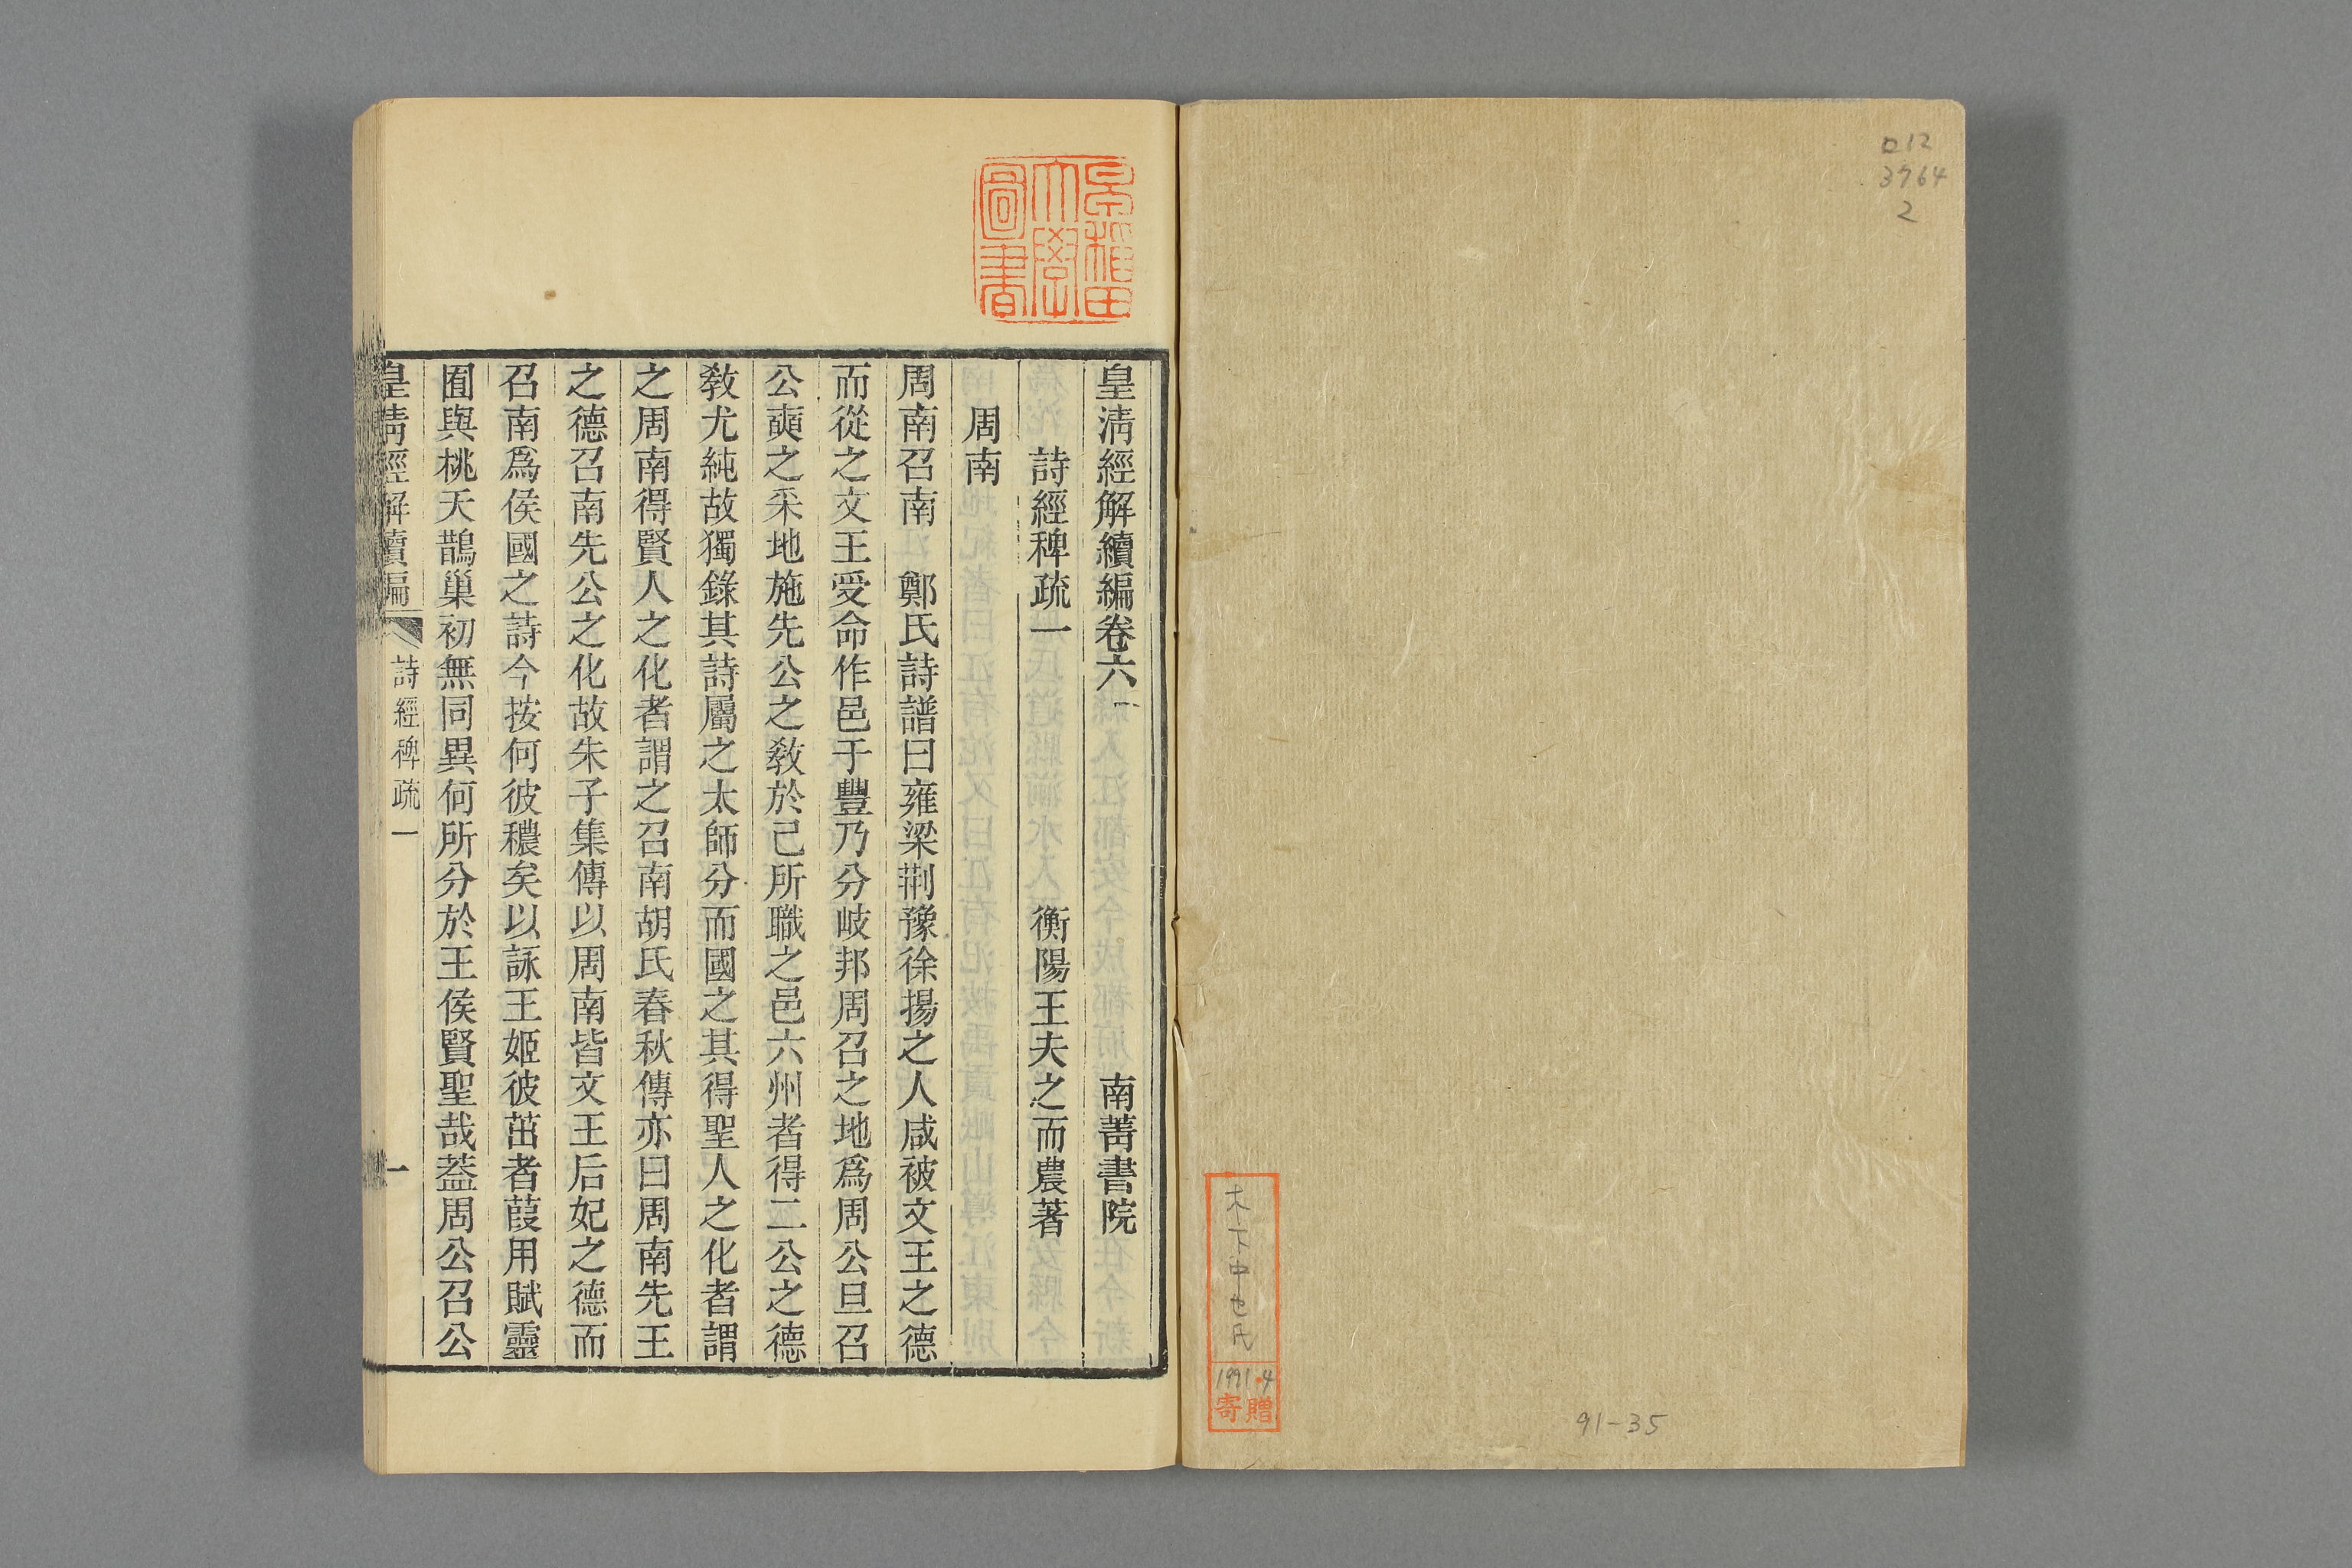 口12
3764
2
木下中也氏
1991.4
寄贈
91-35
早稲田
大學
圖書
皇清經解續編卷六 南菁書院
詩經稗疏一 衡陽王夫之而農著
周南
周南召南 鄭氏詩譜曰雍梁荆豫徐揚之人咸被文王之德
而從之文王受命作邑于豐乃分岐邦周召之地爲周公旦召
公奭之采地施先公之教於己所職之邑六州者得二公之德
教尤純故獨錄其詩屬之太師分而國之其得聖人之化者謂
之周南得賢人之化者謂之召南胡氏春秋傳亦曰周南先王
之德召南先公之化故朱子集傳以周南皆文王后妃之德而
召南爲侯國之詩今按何彼穠矣以詠王姬彼茁者葭用賦靈
囿與桃夭鵲巢初無同異何所分於王侯賢聖哉葢周公召公
皇清經解續編 詩經稗疏一 一